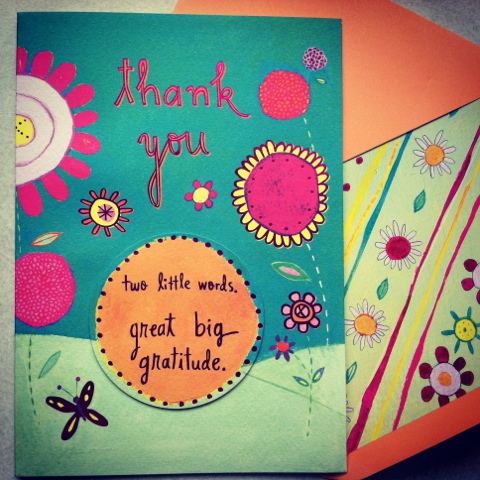 thank
you
two little words.
great big
gratitude.